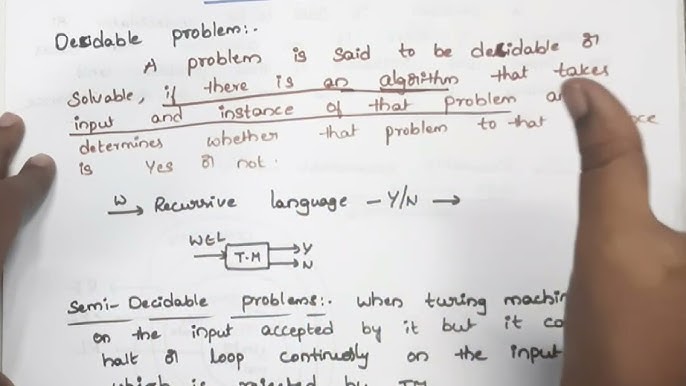 Decidable problem:-
A problem is said to be decidable or
Solvable, if there is an algorithm that takes
input and instance of that problem
determines whether that problem to that
is Yes or not.
w → Recursive language - Y/N →
WEL
T.M
Y
N
Semi-Decidable problems:- when turing
on the input accepted by it but it
halt or Loop continuosly on the input
which is rejected by TM